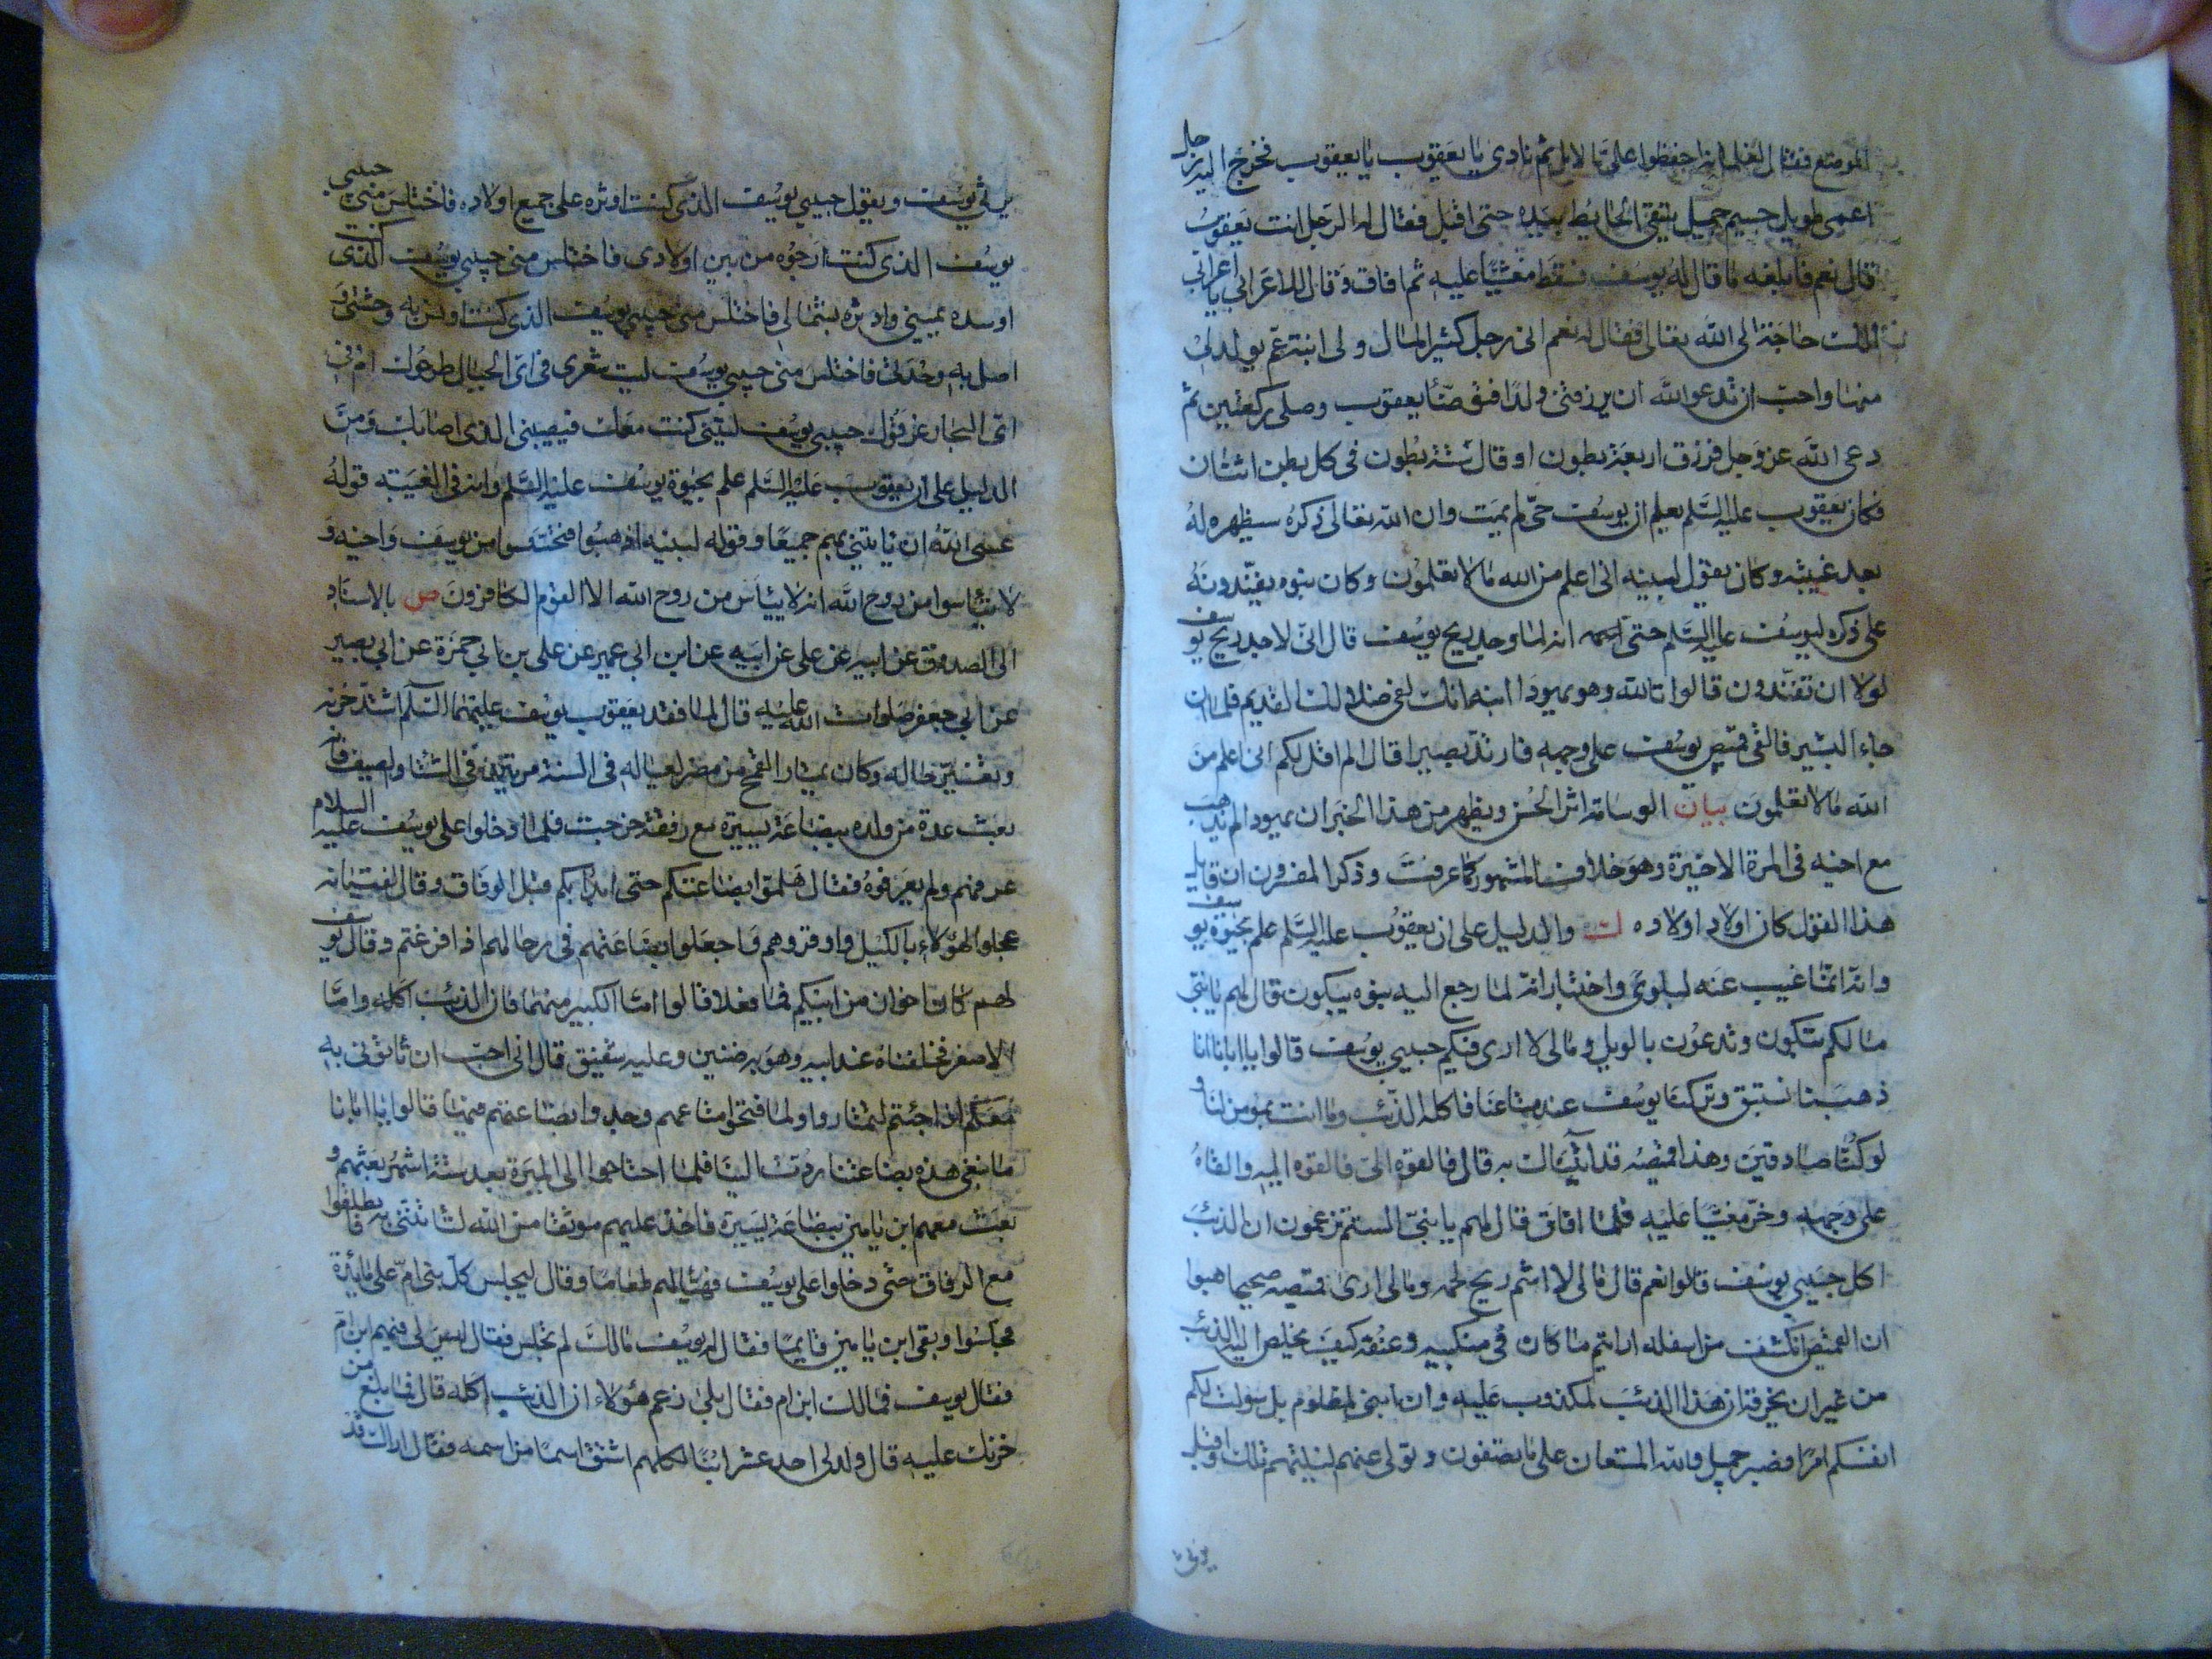 الموضع فقال لغلمانه احفظوا على الابل ثم نادى يا يعقوب يا يعقوب فخرج اليه رجل
اعمى طويل جسيم جميل يتقى الحايط بيده حتى اقبل فقال له الرجل انت يعقوب
قال نعم فابلغه ما قال له يوسف فسقط مغشيّا عليه ثم افاق وقال للاعرابي يا اعرابي
الك حاجة الى الله تعالى فقال له نعم انى رجل كثير المال ولى ابنة عم يولد لى
منها واحبّ ان تدعو الله ان يرزقنى ولدا فتوضّأ يعقوب وصلى ركعتين ثم
دعى الله عز وجل فرزق اربعة بطون او قال ستة بطون في كل بطن اثنان
فكان يعقوب عليه السّلم يعلم ان يوسف حىّ لم يمت وان الله تعالى ذكره سيظهره له
بعد غيبته وكان يقول لبنيه انى اعلم من الله ما لا تعلمون وكان بنوه يفنّدونه
على ذكره ليوسف عليه السّلم حتى انه لما وجد ريح يوسف قال انىّ لاجد ريح يوسف
لولا ان تفنّدون قالوا تالله وهو يهودا ابنه انك لفى ضلالك القديم فلما ان
جاء البشير فالقى قميص يوسف على وجهه فارتدّ بصيرا قال الم اقل لكم انى اعلم من
الله ما لا تعلمون بيان الوسامة اثر الحُسن ويظهر من هذا الخبر ان يهودا لم يذهب
مع اخيه في المرة الاخيرة وهو خلاف المشهور كما عرفت وذكر المفسرون ان قايل
هذا القول كان اولاد اولاده ك والدليل على ان يعقوب عليه السّلم علم بحيوة يوسف
وانه انّما غيب عنه لبلوى واختبار انه لما رجع اليه بنوه يبكون قال لهم يا بنىّ
ما لكم تبكون وتدعون بالويل وما لى لا ارى فيكم حبيبى يوسف قالوا يا ابانا انا
ذهبنا نستبق وتركنا يوسف عند متاعنا فاكله الذئب وما انت بمؤمن لنا و
لو كنّا صادقين وهذا قميصه قد اتيناك به قال فالقوه الىّ فالقوه اليه والقاه
على وجهه وخرّ مغشيّا عليه فلما افاق قال لهم يا بنىّ الستم تزعمون ان الذئب
اكل حبيبى يوسف قالوا نعم قال ما لى لا اشم ريح لحمه وما لى ارى قميصه صحيحا هبوا
ان القميص انكشف من اسفله ارايتم ما كان في منكبيه وعنقه كيف يخلص اليه الذئب
من غير ان يخرقه ان هذا الذئب لمكذوب عليه وان ابنى لمظلوم بل سولت لكم
انفسكم امرًا فصبر جميل والله المستعان على ما تصفون وتولى عنهم ليلتهم تلك واقبل
يرثى
يرثي يوسف ويقول حبيبي يوسف الذى كنت اوثره على جميع اولاده فاختلس منى حبيبي
يوسف الذى كنت ارجوه من بين اولادى فاختلس منى حبيبي يوسف الذى كنت
اوسده يمينى وادثره بشمالى فاختلس منى حبيبي يوسف الذى كنت اونس به وحشتى و
اصل به وحدتى فاختلس منى حبيبي يوسف ليت شعرى في اىّ الجبال طرحوك ام فى
اىّ البحار غرقوك حبيبي يوسف ليتنى كنت معك فيصيبنى الذى اصابك ومن
الدليل على ان يعقوب عليه السّلم علم بحيوة يوسف عليه السّلم وانه في الغيبة قوله
عسى الله ان ياتينى بهم جميعًا وقوله لبنيه اذهبوا فتحسّسوا من يوسف واخيه و
لا تيأسوا من روح الله انه لا ييأس من روح الله الا القوم الكافرون ص بالاسناد
الى الصدوق عن ابيه عن على عن ابيه عن ابن ابي عمير عن على بن ابي حمزة عن ابي بصير
عن ابي جعفر صلوات الله عليه قال لما فقد يعقوب يوسف عليهما السّلم اشتدّ حزنه
وتغيّر حاله وكان يمتار القمح من مصر لعياله في السنة مرّتين في الشتا والصيف فانه
بعث عدة من ولده ببضاعة يسيرة مع رفقة خرجت فلما دخلوا على يوسف عليه السلام
عرفهم ولم يعرفوه فقال هلموا بضاعتكم حتى ابدأ بكم قبل الرفاق وقال لفتيانه
عجلوا لهؤلاء بالكيل واوفروهم واجعلوا بضاعتهم في رحالهم اذا فرغتم وقال يوسف
لهم كان اخوان من ابيكم فما فعلا قالوا امّا الكبير منهما فان الذئب اكله وامّا
الاصغر فخلفناه عند ابيه وهو به ضنين وعليه شفيق قال انى احبّ ان تأتونى به
معكم اذا جئتم لتمتاروا ولما فتحوا متاعهم وجدوا بضاعتهم فيها قالوا يا ابانا
ما نبغى هذه بضاعتنا ردّت الينا فلما احتاجوا الى الميرة بعد ستة اشهر بعثهم و
بعث معهم ابن يامين ببضاعة يسيرة فاخذ عليهم موثقا من الله لتاتنّنى به فانطلقوا
مع الرفاق حتى دخلوا على يوسف فهيّأ لهم طعامًا وقال ليجلس كلّ بنى امّ على مائدة
فجلسوا وبقى ابن يامين قايمًا فقال له يوسف مالك لم تجلس فقال ليس لى فيهم ابن امّ
فقال يوسف فمالك ابن ام فقال بلى زعم هؤلاء ان الذئب اكله قال فما بلغ من
حزنك عليه قال ولد لى احد عشر ابنًا لكلهم اشتق اسمًا من اسمه فقال اراك قد